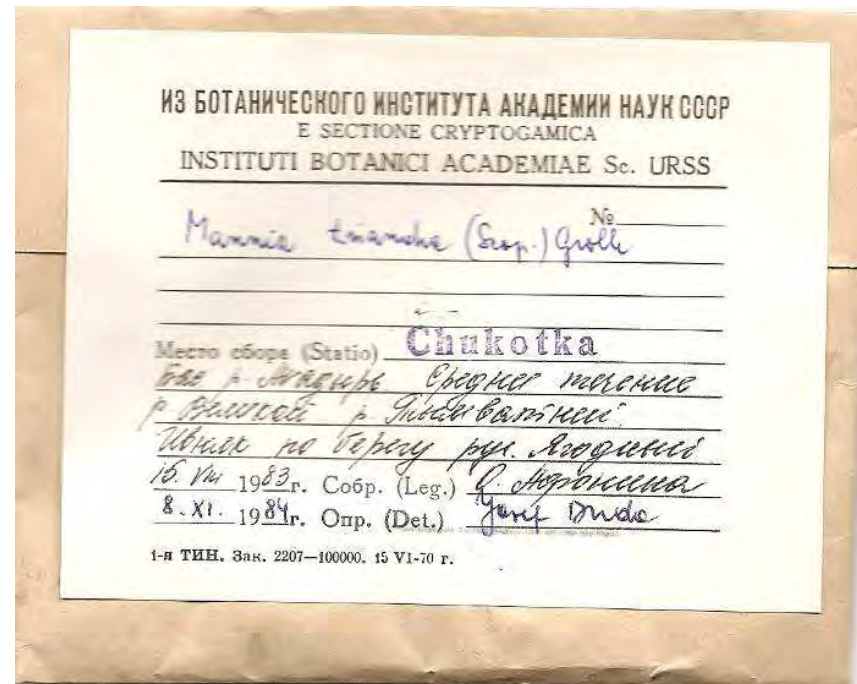 ИЗ БОТАНИЧЕСКОГО ИНСТИТУТА АКАДЕМИИ НАУК СССР
E SECTIONE CRYPTOGAMICA
INSTITUTI BOTANICI ACADEMIAE Sc. URSS
№
Mannia triandra (Scop.) Grolle
Место сбора (Statio) Chukotka
Бас р. Анадырь Среднее течение
р Великой р.
Ивняк по берегу руч. Ягодный
15. VIII 1983г. Собр. (Leg.) О. Афонина
8. XI. 1984г. Опр. (Det.) Josef Duda
1-я ТИН. Зак. 2207—100000. 15 VI-70 г.